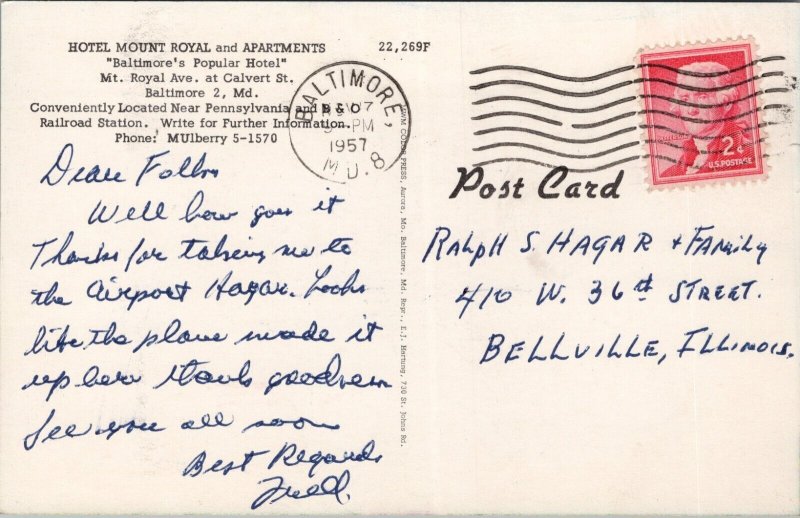 HOTEL MOUNT ROYAL and APARTMENTS
"Baltimore's Popular Hotel"
Mt. Royal Ave. at Calvert St.
Baltimore 2, Md.
Conveniently Located Near Pennsylvania and B & O
Railroad Station. Write for Further Information.
Phone: MUlberry 5-1570
22,269F
BALTIMORE,
PM
1957
MD. 8
2¢
U.S. POSTAGE
Post Card
Dear Folks
Well how goes it
Thanks for taking me to
the Airport Hagar. Looks
like the plane made it
up here thank goodness
See you all soon
Best Regards
COLOR PRESS, Aurora, Mo. Baltimore, Md. Repr., E. J. Hartung, 730 St. Johns Rd.
RALPH S. HAGAR + FAMILY
410 W. 36th STREET.
BELLVILLE, ILLINOIS.